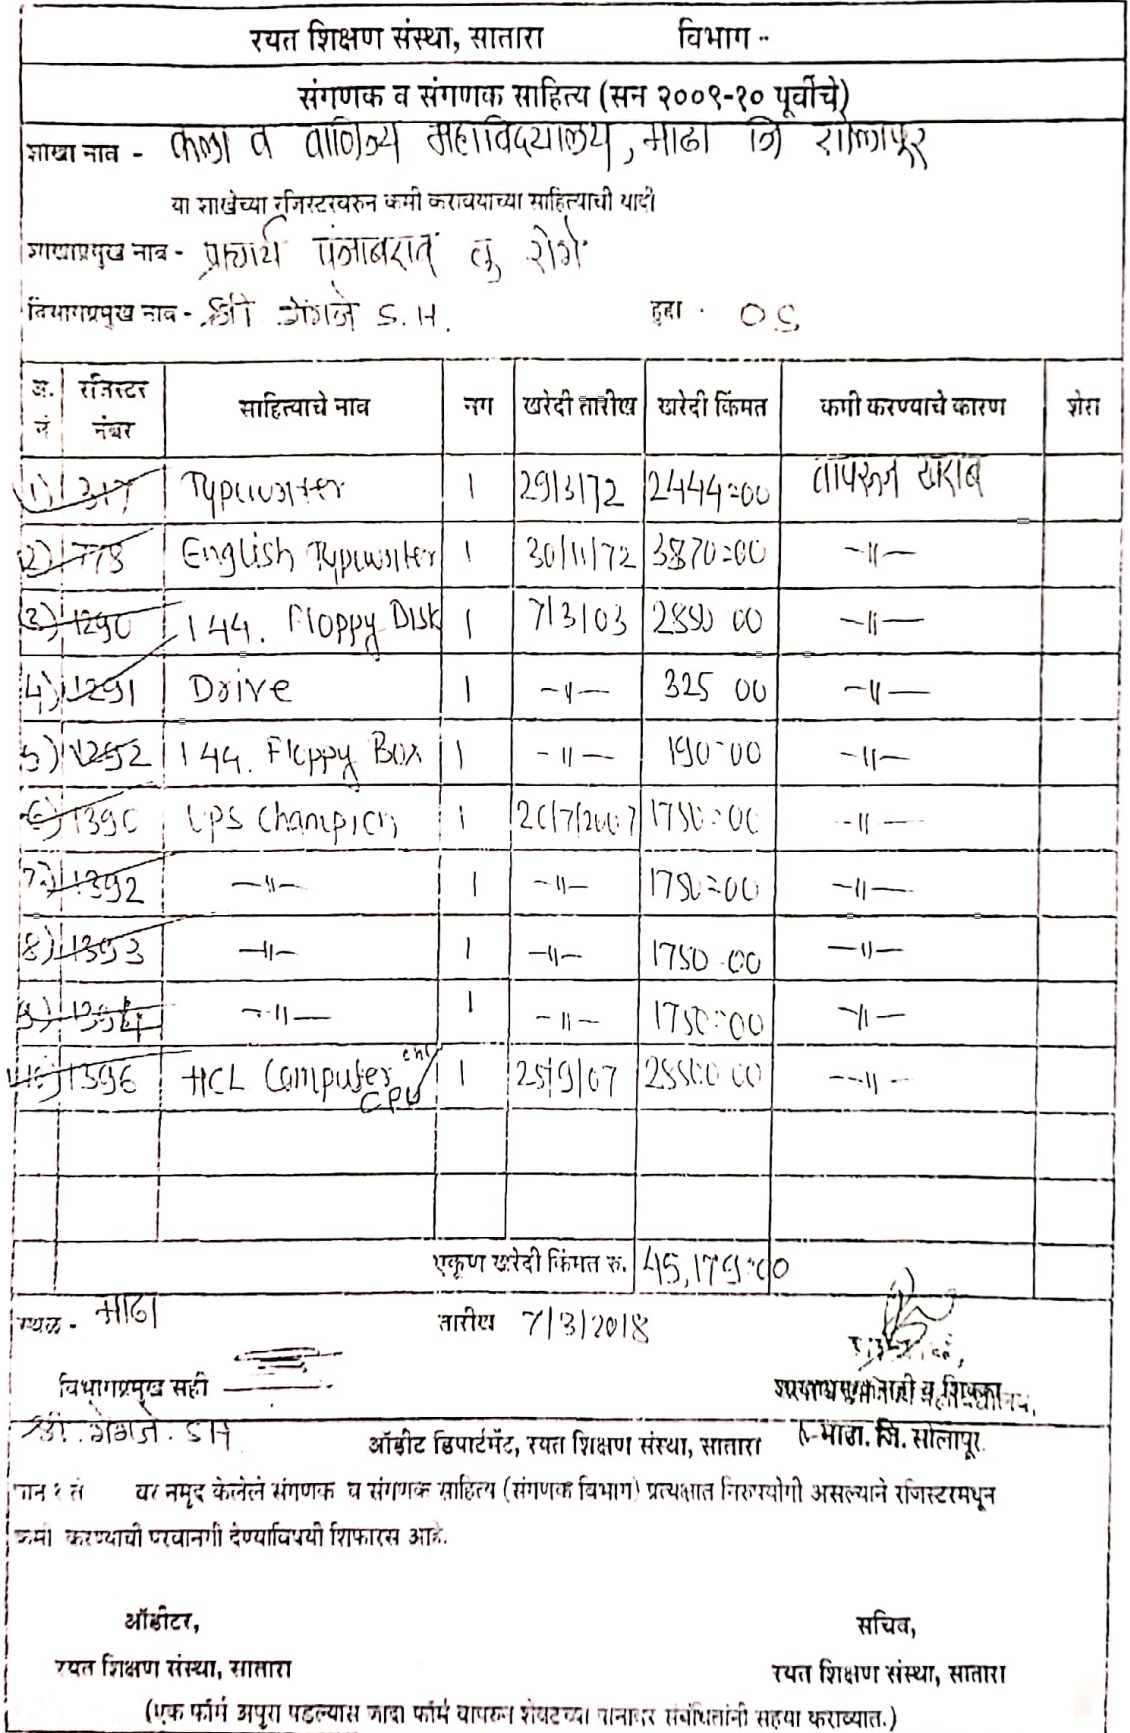 रयत शिक्षण संस्था, सातारा विभाग --
संगणक व संगणक साहित्य (सन २००९-१० पूर्वीचे)
शाखा नाव - कला व वाणिज्य महाविद्यालय, माढा जि सोलापूर
या शाखेच्या रजिस्टरवरुन कमी करावयाच्या साहित्याची यादी
शाखाप्रमुख नाव - प्राचार्य पंजाबराव रोंगे
विभागप्रमुख नाव - श्री S.H. हुद्दा - OS
अ.नं रजिस्टर नंबर साहित्याचे नाव नग खरेदी तारीख खरेदी किंमत कमी करण्याचे कारण शेरा
1) 317 Typewriter 1 29/3/72 2444=00 वापरून खराब
2) 778 English Typewriter 1 30/11/72 3870=00 -"-
3) 1290 1 44. Floppy Disk 1 7/3/03 2850 00 -"-
4) 1291 Drive 1 -"- 325 00 -"-
5) 1292 1 44. Floppy Box 1 -"- 190=00 -"-
6) 1390 UPS Champion 1 20/7/2007 1750=00 -"-
7) 1392 -"- 1 -"- 1750=00 -"-
8) 1393 -"- 1 -"- 1750-00 -"-
9) 1394 -"- 1 -"- 1750=00 -"-
10) 1396 HCL Computer CPU 1 25/9/07 28500 00 -"-
एकूण खरेदी किंमत रु. 45,179=00
स्थळ - माढा तारीख 7/3/2018
विभागप्रमुख सही
श्री. S H
ऑडीट डिपार्टमेंट, रयत शिक्षण संस्था, सातारा माढा. जि. सोलापूर.
पान १ ते वर नमूद केलेले संगणक व संगणक साहित्य (संगणक विभाग) प्रत्यक्षात निरुपयोगी असल्याने रजिस्टरमधून
कमी करण्याची परवानगी देण्याविषयी शिफारस आहे.
ऑडीटर, सचिव,
रयत शिक्षण संस्था, सातारा रयत शिक्षण संस्था, सातारा
(एक फॉर्म अपुरा पडल्यास जादा फॉर्म वापरुन शेवटच्या पानावर संबंधितांनी सहया कराव्यात.)